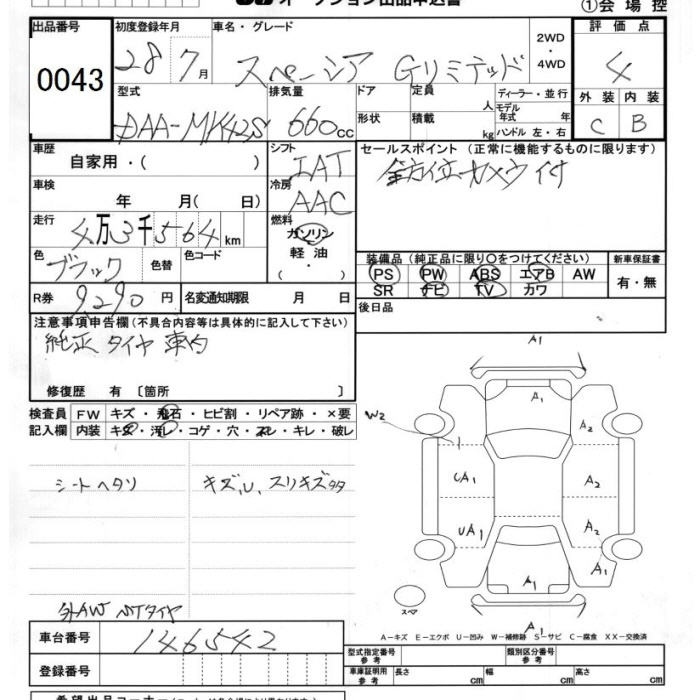 オークション出品申込書
①会場控
出品番号
0043
初度登録年月
28 7月
車名・グレード
スペーシア Gリミテッド
2WD
・
4WD
評価点
4
外装 内装
C B
型式
DAA-MK42S
排気量
660cc
ドア
形状
定員 人
積載 kg
ディーラー・並行
モデル年式 年
ハンドル 左・右
車歴
自家用・( )
シフト
IAT
セールスポイント (正常に機能するものに限ります)
全方位カメラ付
車検
年 月( 日)
冷房
AAC
走行
4万3千564km
燃料
ガソリン
軽油
・
色
ブラック
色替
色コード
装備品(純正品に限り○をつけてください)
PS PW ABS エアB AW
SR ナビ TV カワ
新車保証書
有・無
R券
9290円
名変通知期限 月 日
後日品
注意事項申告欄(不具合内容等は具体的に記入して下さい)
純正タイヤ車内
修復歴 有 〔箇所 〕
検査員記入欄
FW キズ・飛石・ヒビ割・リペア跡・×要
内装 キズ・汚レ・コゲ・穴・ヌレ・キレ・破レ
シートヘタリ
キズ,U,スリキズタタ
外AW NTタイヤ
A1
A1
W2
UA1
A2
UA1
A2
A1
A1
A1
スペア
A-キズ E-エクボ U-凹み W-補修跡 S-サビ C-腐食 XX-交換済
車台番号
146542
登録番号
型式指定番号
参考
類別区分番号
参考
車庫証明用
参考
長さ cm 幅 cm 高さ cm